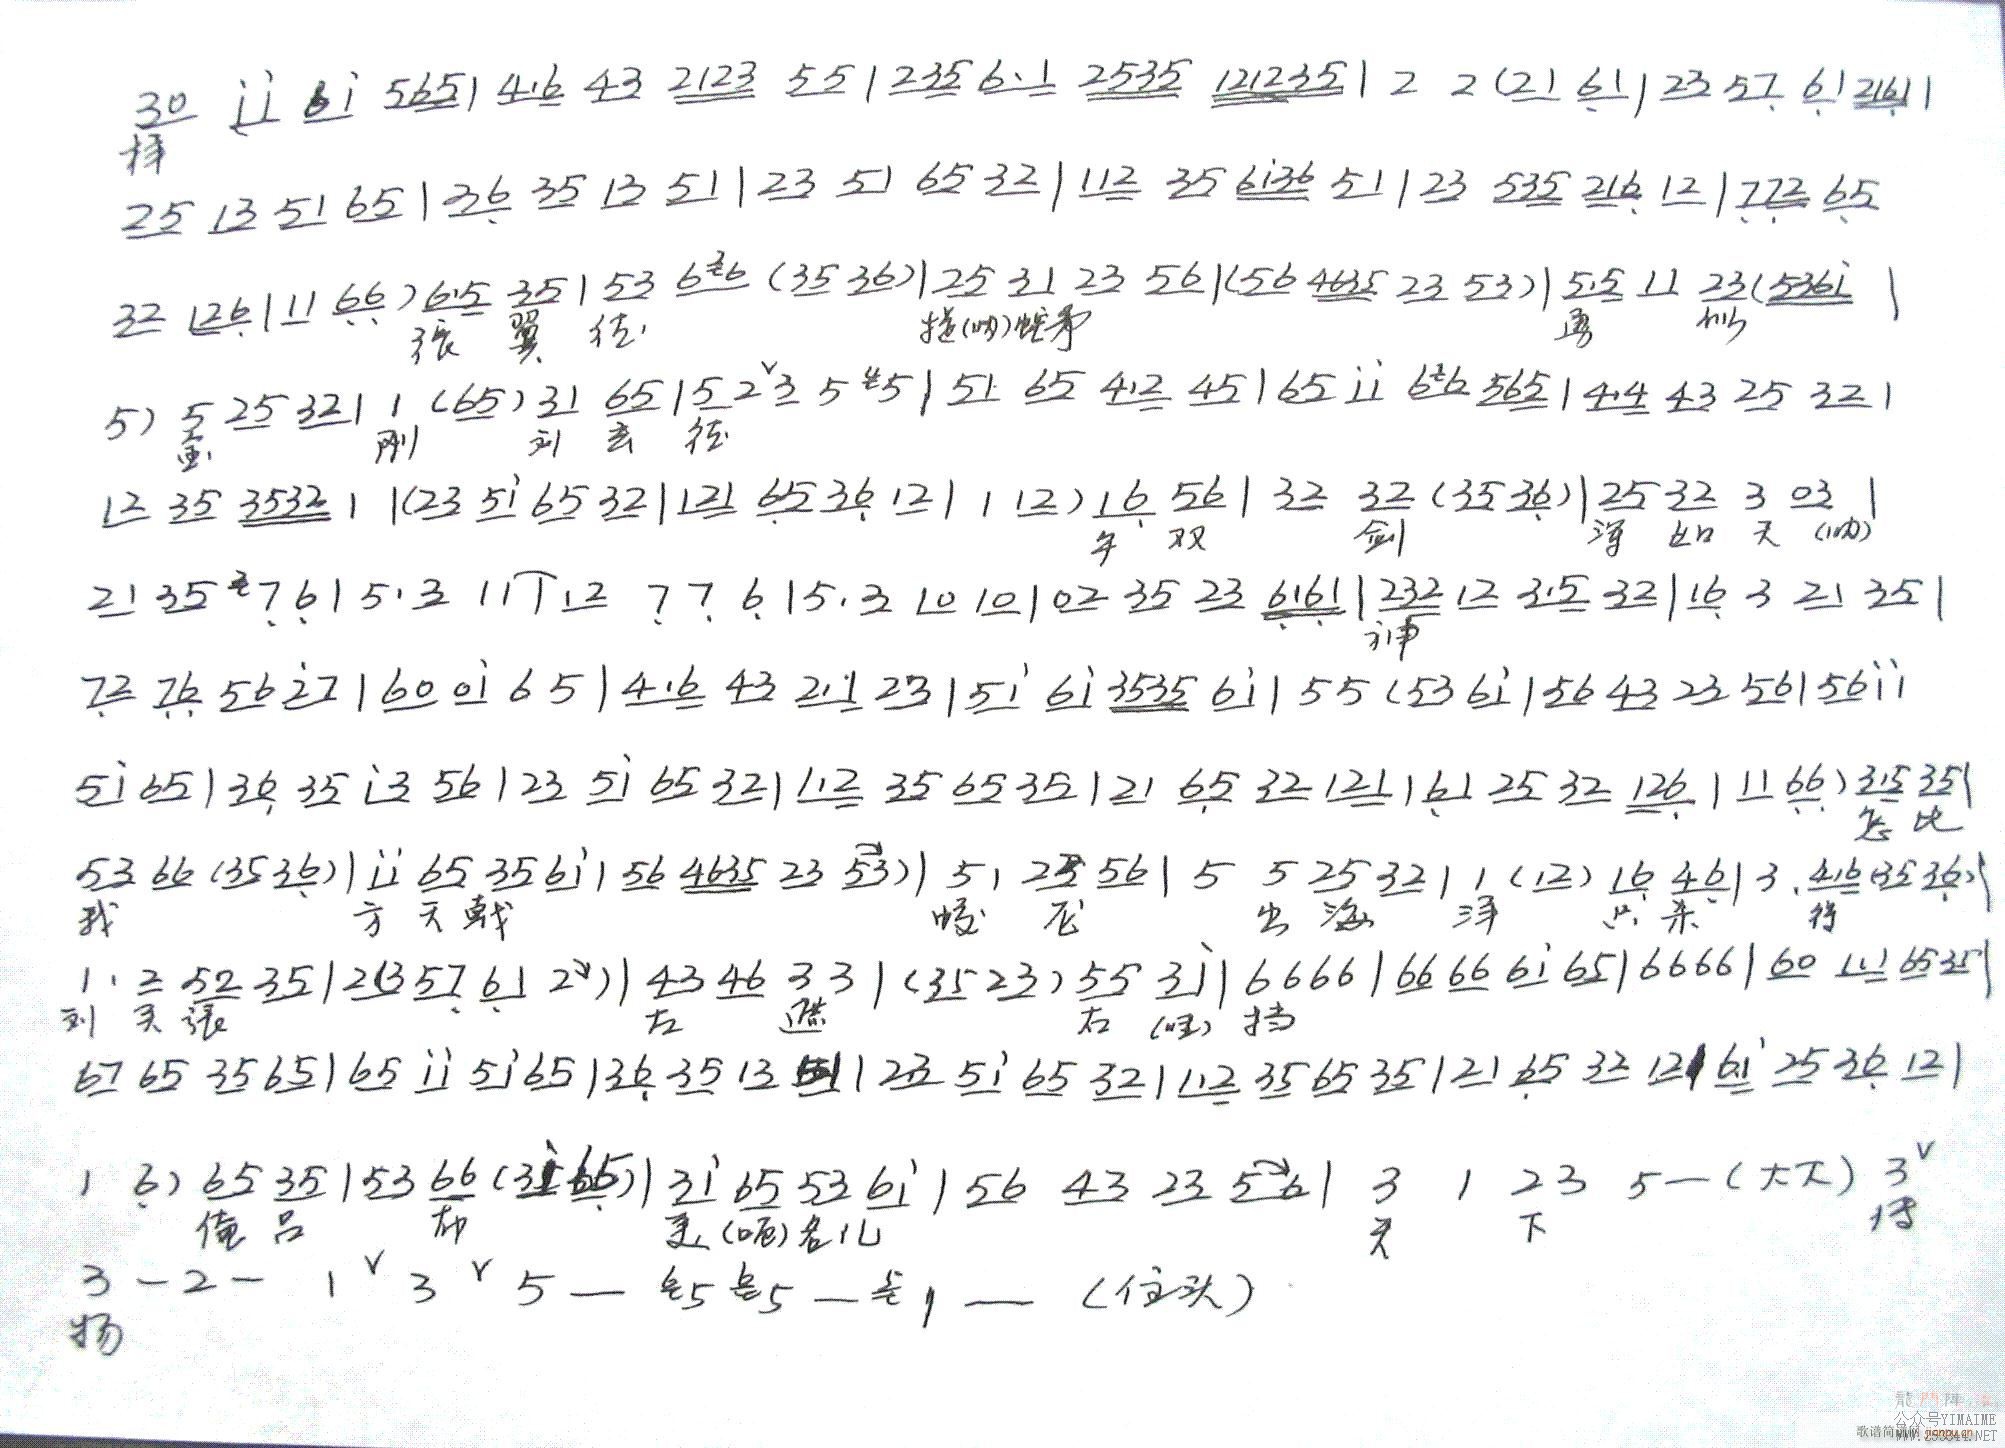 30 i i 6 i 565 | 4·6 43 2123 55 | 235 6·1 2535 121235 | 2 2 (21 61 | 23 57 61 2161 |
择
25 13 51 65 | 36 35 13 51 | 23 51 65 32 | 112 35 6i36 51 | 23 535 216 12 | 772 65
32 126 | 11 66) 6·5 35 | 53 6 6 (35 36) | 25 31 23 56 | (56 4635 23 53) | 5·5 11 23 (536i |
张 翼 德 (呐) 蛇矛 勇 似
5) 5 25 32 | 1 (65) 31 65 | 5 2 3 5 5 | 51 65 4·2 45 | 65 ii 6 6 565 | 4·4 43 25 32 |
金 刚 刘 玄 德
12 35 3532 1 | (23 5i 65 32 | 121 65 36 12 | 1 12) 16 56 | 32 32 (35 36) | 25 32 3 03 |
双 剑 浑 如 天 (呐)
21 35 7 6 | 5·3 11 12 7 7 6 | 5·3 10 10 | 02 35 23 6161 | 232 12 3·5 32 | 16 3 21 35 |
神
72 76 56 27 | 60 0i 6 5 | 4·6 43 2·1 23 | 5i 6i 3535 6i | 55 (53 6i | 56 43 23 56 | 56 ii
5i 65 | 36 35 i3 56 | 23 5i 65 32 | 1·2 35 65 35 | 21 65 32 121 | 61 25 32 126 | 11 66) 3·5 35 |
怎 比
53 66 (35 36) | ii 65 35 6i | 56 4635 23 53) | 5 1 23 56 | 5 5 25 32 | 1 (12) 16 46 | 3· 4·6 (35 36) |
我 方 天 戟 蛟 龙 出 海 洋 只 杀 得
1· 2 52 35 | 2(3 57 61 2) | 43 46 3 3 | (35 23) 55 3i | 6666 | 66 66 6i 65 | 6666 | 60 111 65 35 |
刘 关 张 左 遮 右 (哇) 挡
67 65 35 65 | 65 ii 5i 65 | 36 35 13 51 | 23 5i 65 32 | 1·2 35 65 35 | 21 65 32 12 | 6i 25 36 12 |
1 6) 65 35 | 53 66 (3i 65) | 3i 65 53 6i | 56 43 23 5 6 | 3 1 23 5 — (大大) 3
俺 吕 布 美 (呃) 名儿 天 下 传
3 — 2 — 1 3 5 — 5 5 — 1 — (住头)
扬
龍
公众号YIMAIME
歌谱简谱网 jianpu.cn